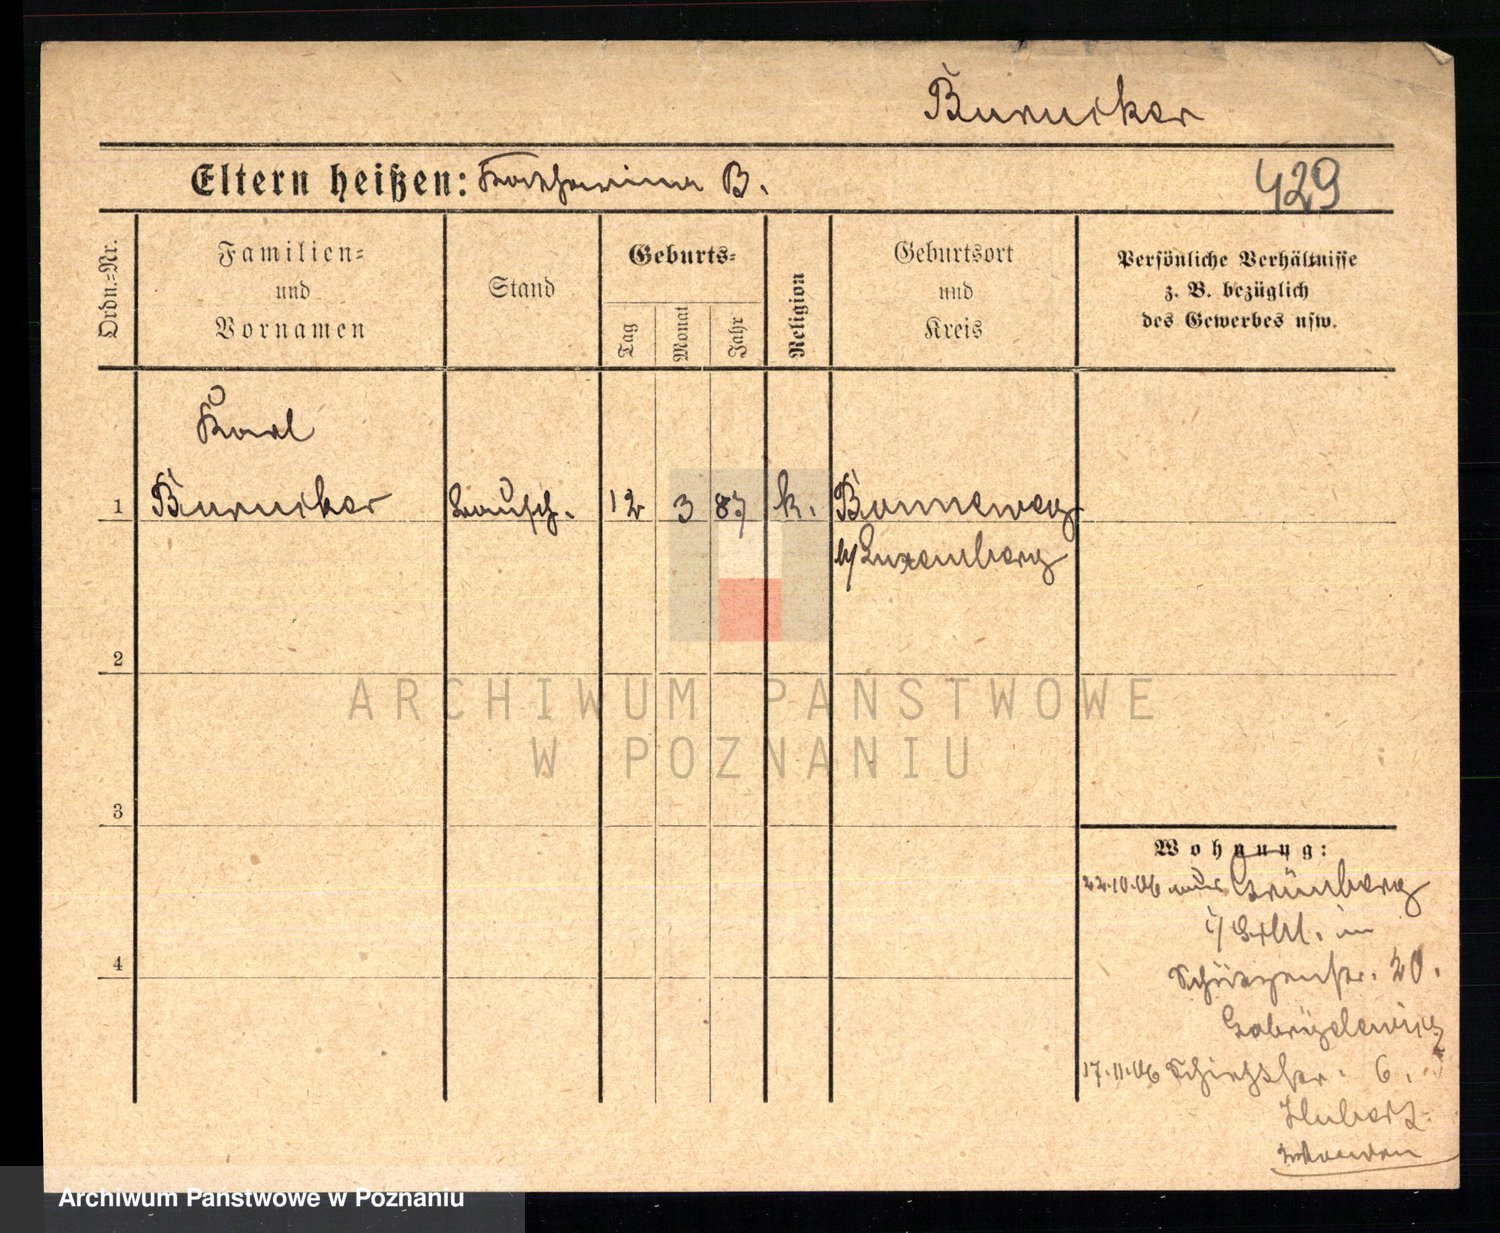 Burnicker
Eltern heißen: Katharina B.
429
Ordn.-Nr.
Familien-
und
Vornamen
Stand
Geburts-
Tag
Monat
Jahr
Religion
Geburtsort
und
Kreis
Persönliche Verhältnisse
z. B. bezüglich
des Gewerbes usw.
Karl
1
Burnicker
12 3 87 k. Bonneweg
b/ Luxemburg
2
3
4
Wohnung:
22.10.06 aus Grünberg
i/ Schl. in
Schützenstr. 20.
17.11.06 6.
ARCHIWUM PAŃSTWOWE
W POZNANIU
Archiwum Państwowe w Poznaniu